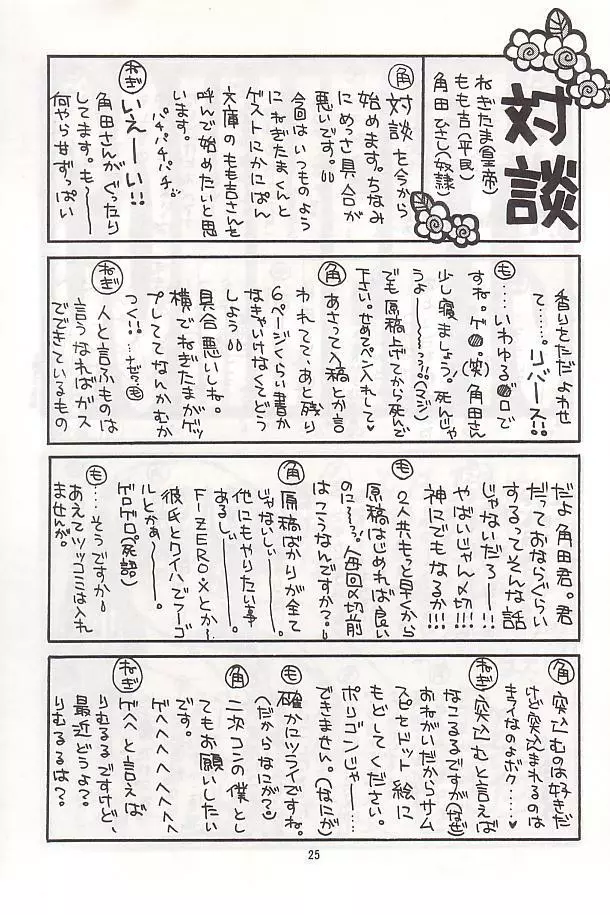 対談
ねぎたま(皇帝)
もも吉(平民)
角田ひさし(奴隷)
角 対談を今から
始めます。ちなみ
にめっさ具合が
悪いです。
今回はいつものよう
にねぎたまくんと
ゲストにかにぱん
文庫のもも吉さんを
呼んで始めたいと思
います。
パチパチパチ。
ねぎ いえーい!!
角田さんがぐったり
してます。も〜
何やらせずっぱい
香りをただよわせ
て……。リバース!!
も ……いわゆる●ロで
すね。ゲ●。(笑)角田さん
少し寝ましょう!死んじゃ
うよ〜〜っ!!(マジ)
でも原稿上げてから死んで
下さい。せめてペン入れして♥
角 あさって入稿とか言
われてて、あと残り
6ページくらい書か
なきゃいけなくてどう
しよう
具合悪いしね。
横でねぎたまがゲッ
プしててなんかむか
つく!!…なぜっも
ねぎ 人と言ふものは
言うなればガス
でできているもの
だよ角田君。君
だっておならぐらい
するってそんな話
じゃないだろー!!
やばいじゃん〆切!!
神にでもなるか!!!
も 2人共もっと早くから
原稿はじめれば良い
のに〜っ!人毎回〆切前
はこうなんですか?
角 原稿ばかりが全て
じゃないしぃー。
他にもやりたい事
あるしぃー。
F-ZEROXとか〜
彼氏とクイハでフーゴ
ルとかぁー。
ゲロゲロ(死語)
も ……そうですか
あえてツッコミは入れ
ませんが。
角 突込むのは好きだ
けど突込まれるのは
キライなのよボク……♥
ねぎ 突込むと言えば
なこるるですが(なぜ)
おねがいだからサム
スピをドット絵に
もどしてください。
ポリゴンじゃ……
できません。(なにが)
も 確かにツライですね。
(だからなにが?)
角 二次コンの僕とし
てもお願いしたい
です。
ゲヘヘヘヘヘヘヘ
ねぎ ゲヘヘと言えば
りむるるですけど、
最近どうよ?。
りむるるは?。
25